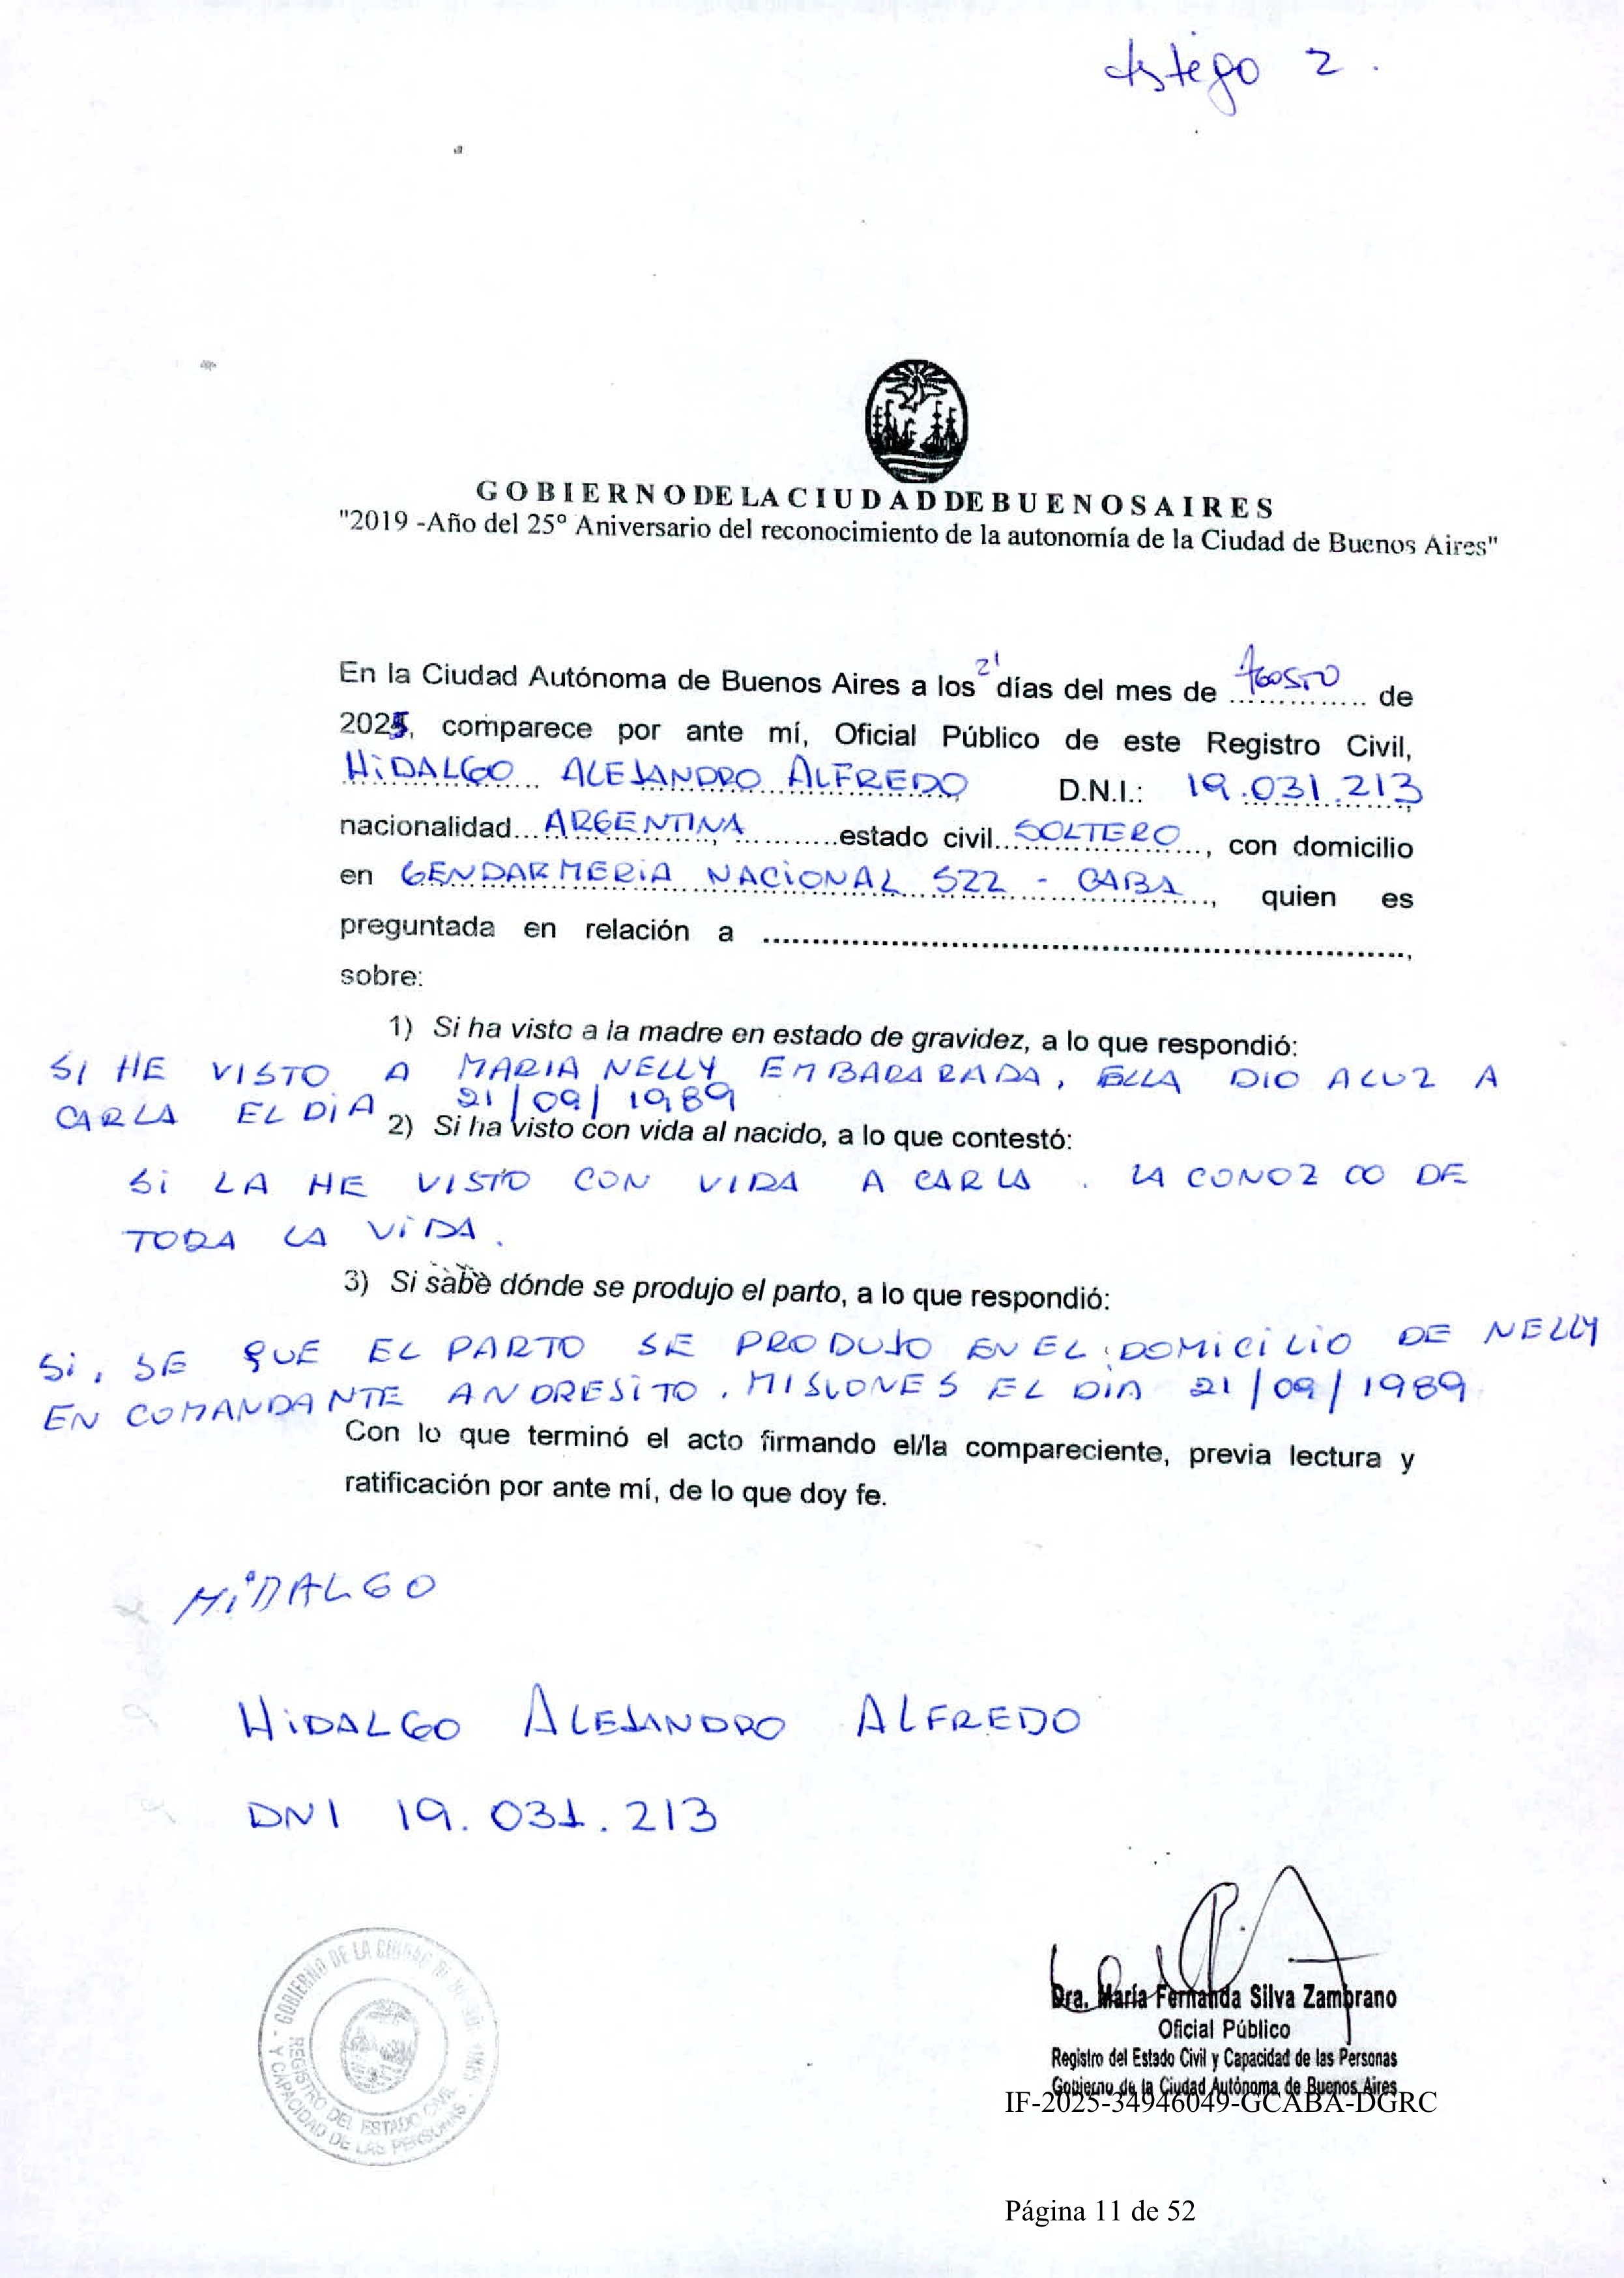 testigo 2.
GOBIERNO DE LA CIUDAD DE BUENOS AIRES
"2019 -Año del 25° Aniversario del reconocimiento de la autonomía de la Ciudad de Buenos Aires"
En la Ciudad Autónoma de Buenos Aires a los 21 días del mes de AGOSTO de
2025, comparece por ante mí, Oficial Público de este Registro Civil,
HIDALGO ALEJANDRO ALFREDO D.N.I.: 19.031.213,
nacionalidad ARGENTINA, estado civil SOLTERO, con domicilio
en GENDARMERIA NACIONAL 522 - CABA, quien es
preguntada en relación a ,
sobre:
1) Si ha visto a la madre en estado de gravidez, a lo que respondió:
SI HE VISTO A MARIA NELLY EMBARARADA, ELLA DIO A LUZ A
CARLA EL DIA 21/09/1989
2) Si ha visto con vida al nacido, a lo que contestó:
Si LA HE VISTO CON VIDA A CARLA. LA CONOZCO DE
TODA LA VIDA.
3) Si sabe dónde se produjo el parto, a lo que respondió:
Si, SE QUE EL PARTO SE PRODUJO EN EL DOMICILIO DE NELLY
EN COMANDANTE ANDRESITO, MISIONES EL DIA 21/09/1989
Con lo que terminó el acto firmando el/la compareciente, previa lectura y
ratificación por ante mí, de lo que doy fe.
HIDALGO
HIDALGO ALEJANDRO ALFREDO
DNI 19.031.213
GOBIERNO DE LA CIUDAD DE
REGISTRO DEL ESTADO CIVIL
Y CAPACIDAD DE LAS PERSONAS
Dra. María Fernanda Silva Zambrano
Oficial Público
Registro del Estado Civil y Capacidad de las Personas
Gobierno de la Ciudad Autónoma de Buenos Aires
IF-2025-34946049-GCABA-DGRC
Página 11 de 52